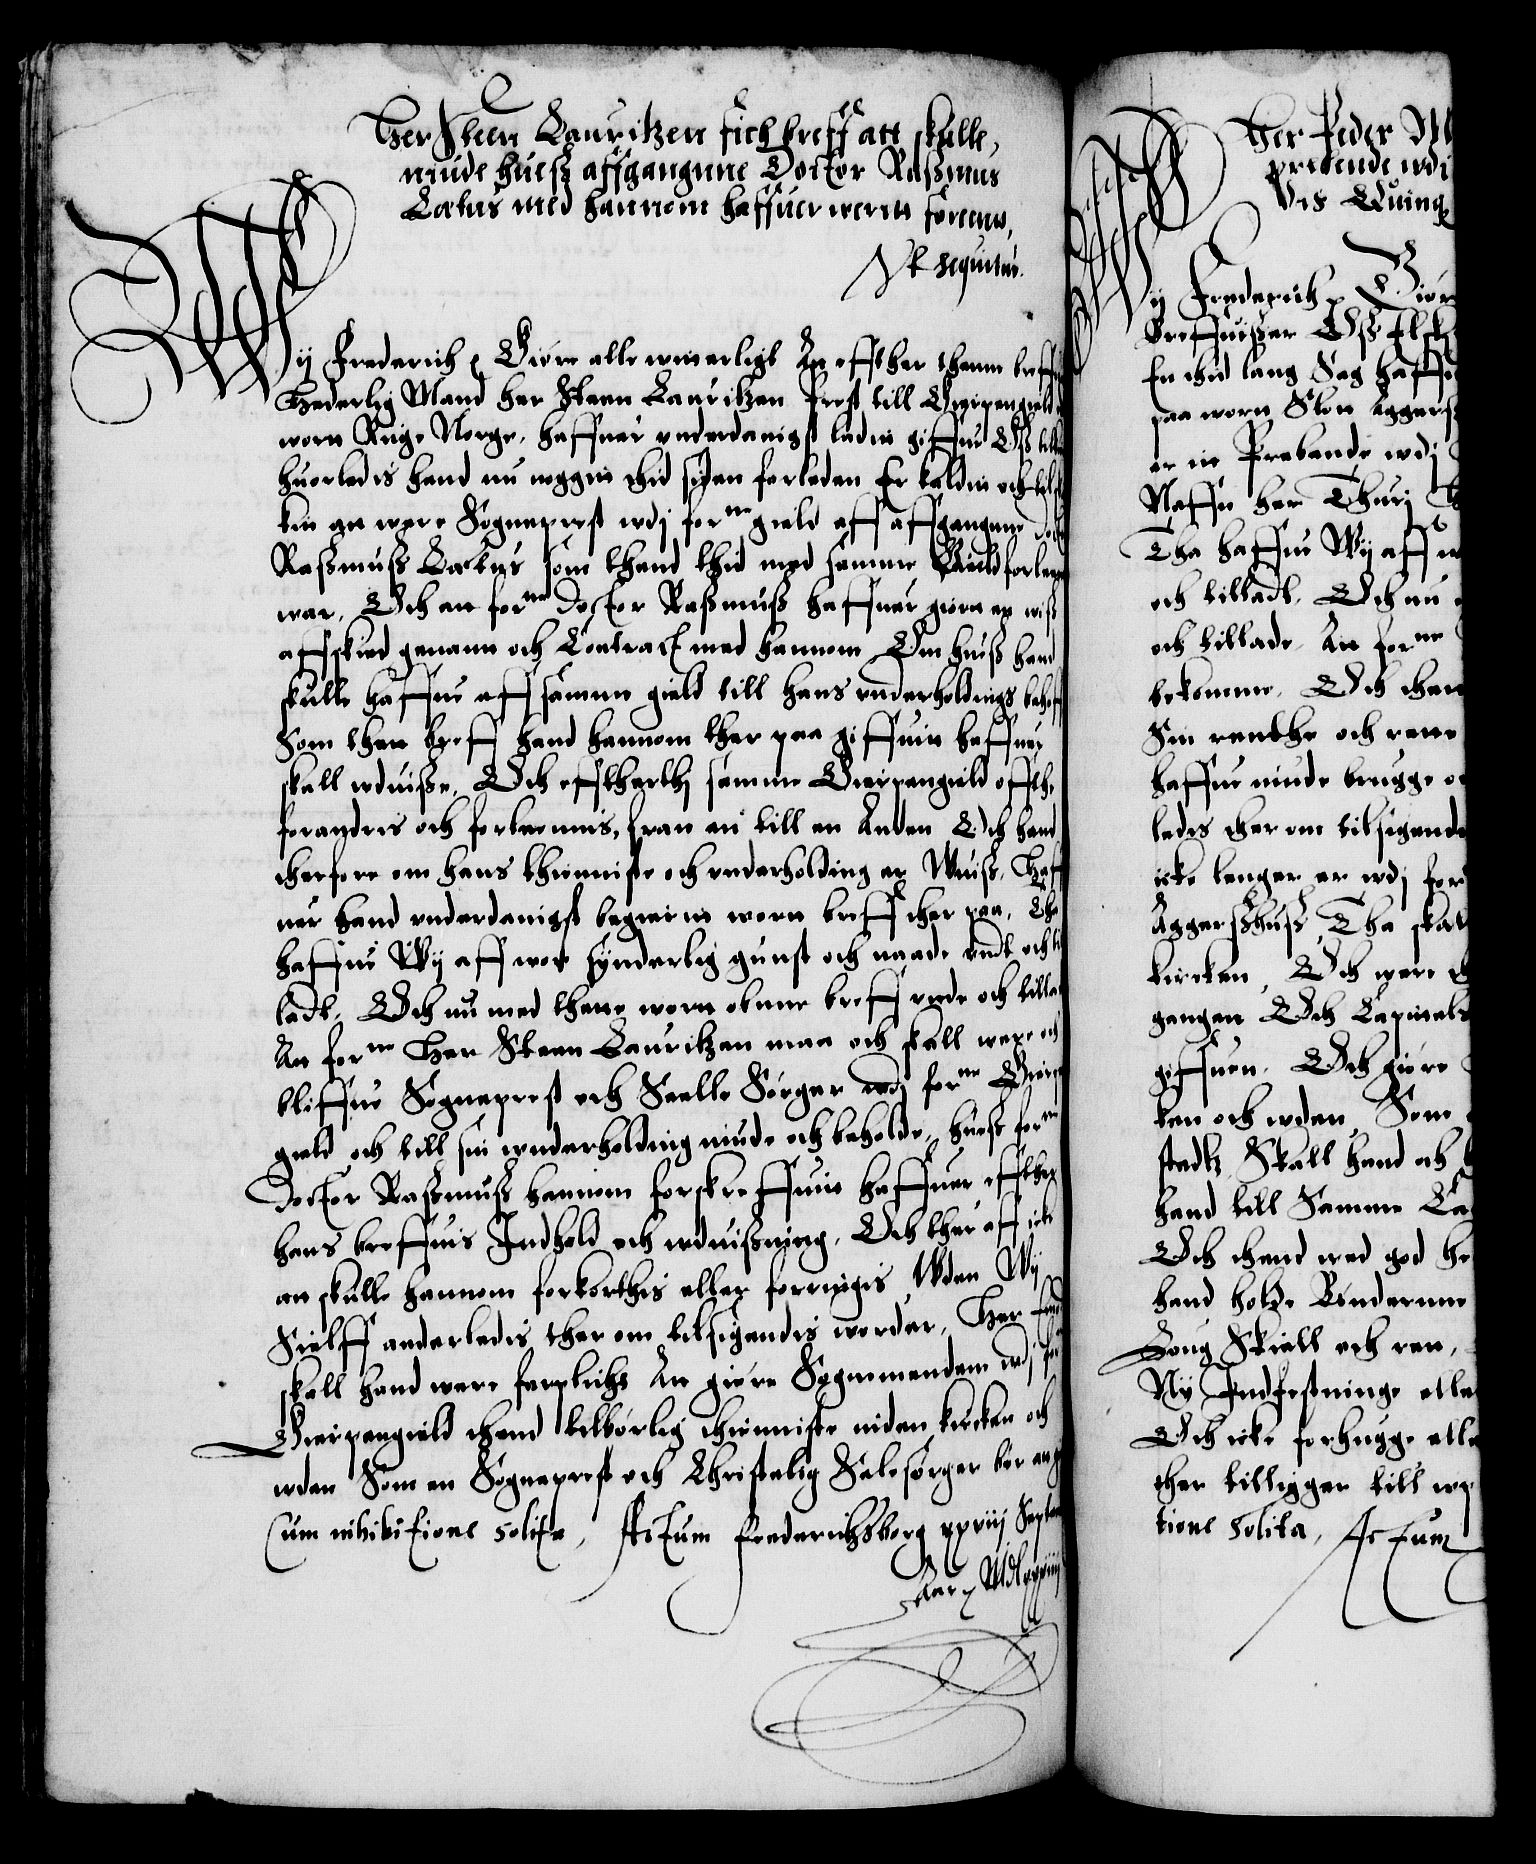 Her Steen Lauritzen fick breff att skulle,
niude huesß affgangnne Doctor Rasmus
Lætus med hannom haffuer werrit foreent,
Vt sequitur.
Wy Frederich etc. Giøre alle witterligt At effther thenne breff
Hederlig Mand her Steen Lauritzen Prest till Gierpengield
worn Rige Norge, haffuer vnderdanigst ladit giffue Oss till
huorledis hand nu nogen thid siden forleden Er kaldit och
tin at were Sogneprest wdj forne gield aff affgangene Doct
Rasmuss Lætus som thend thid med samme Gield forlent
war, Och at forne Doctor Rasmuss haffuer giort en wiss
affskied genann och Contract med hannom Om huess hand
skulle haffue aff samme gield till hans vnderholdnings behoff
Som ther breff hand hannom ther paa giffuit haffuer
skall wduisse, Och effttherthj samme Gierpengield offthe
forandres och forleennis, fran en till en Anden Och hand
therfore om hans thienniste och vnderholding er Wuiss, Haff
uer hand vnderdanigst begierit worn breff ther paa, Tha
haffue Wy aff wor synderlig gunst och naade vndt och til
ladt, Och nu med thette wort obne breff vnde och tillade
At forne Her Steen Lauritzen maa och skall were och
bliffue Sogneprest och Sielle Sørger wdj forne Gierpen
gield och till sin wnderholding niude och beholde, huess forne
Doctor Rasmuss hannom forskreffuit haffuer effther
hans breffuis Indhold och wduissning, Och ther aff icke
at skulle hannom forkorthis eller forringis Wden Wy
Sielff anderledis ther om tilsigendis worder, Her
skall hand were forplicht At giøre Sognemendene wdj for
Gierpengield thend tilbørlig thienniste inden kircken och
wden Som en Sogneprest och Christelig Sælesørger bør att
Cum inhibitione solita, Actum Frederichsborg xxviij Septem
Aar etc. Mdlxxxiij
Her Peder M
prebende wdi
Vis
Wy Frederich etc. Giøre
Breffuisser Oss Elsk
En thid lang Sag haffu
paa worn Slot Aggerss
er en Prebende wdj
Naffn her Thurj
Tha haffue Wy aff w
och tilladt. Och nu
och tillade, At forne
bekomme, Och then
Sin renthe och rette
haffue niude brugge o
ledis ther om tilsigende
icke lenger er wdj for
Aggersshuss, Tha skal
kircken, Och were
gangen Och Capittels
giffuen, Och giøre
ken och wden, Som
stedtz, Skall hand och
hand till Samme
Och thend wed god he
hand holde Bønderne
Loug Skiell och ret,
Ny Indfestninge elle
Och icke forhugge elle
ther tilligger till
tione solita, Actum